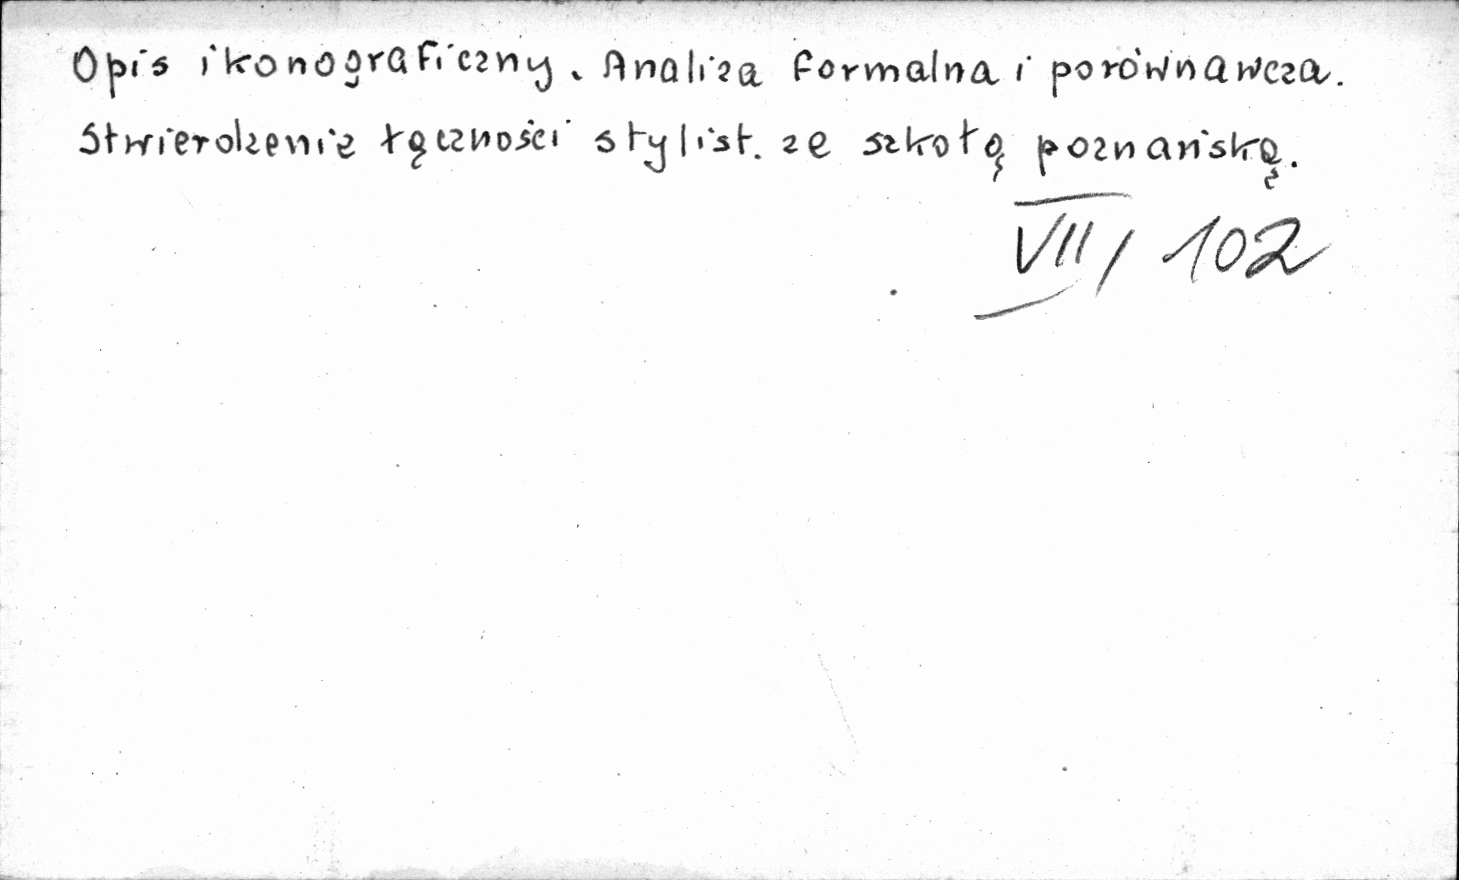 Opis ikonograficzny. Analiza formalna i porównawcza.
Stwierdzenie łączności stylist. ze szkołą poznańską.
VII/102